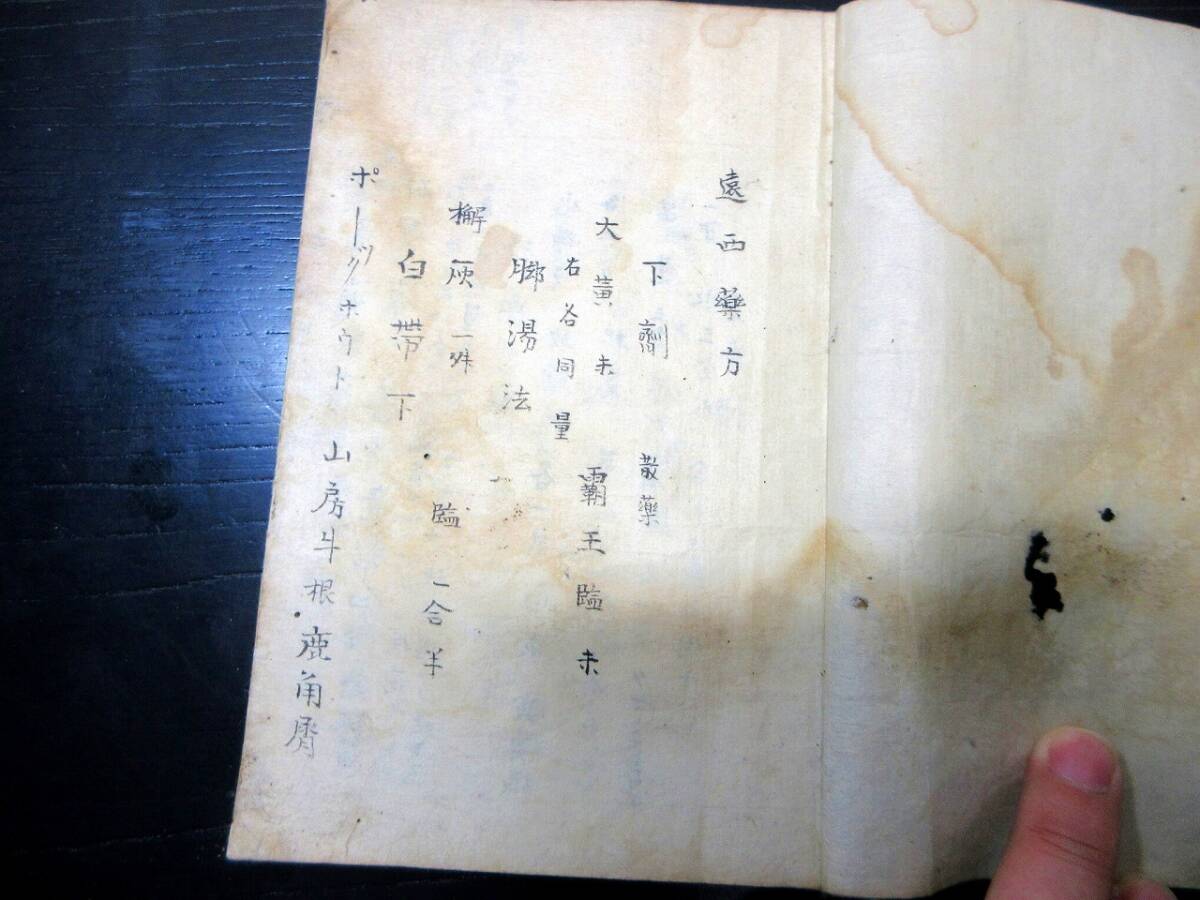 遠西藥方
下劑 散藥
大黃末 霸王鹽末
右各同量
脚湯法
檞灰一殊 鹽一合半
白帯下
ポーックホウト 山房斗根 鹿角屑